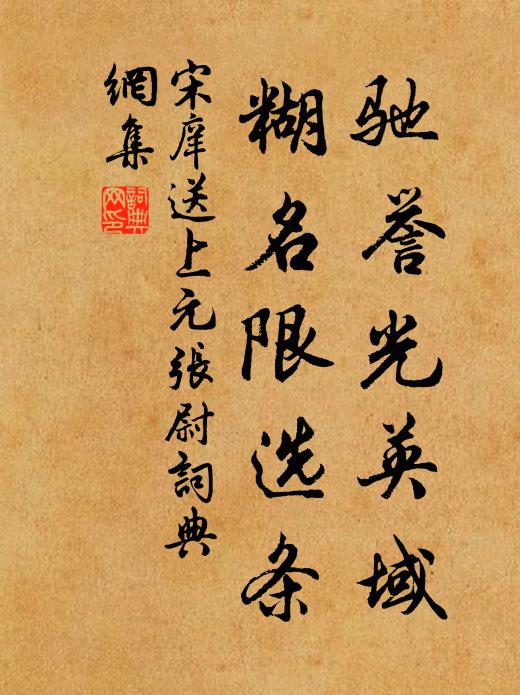 驰誉光英域
糊名限选条
宋庠送上元張尉詞典
網集
詞典
网印